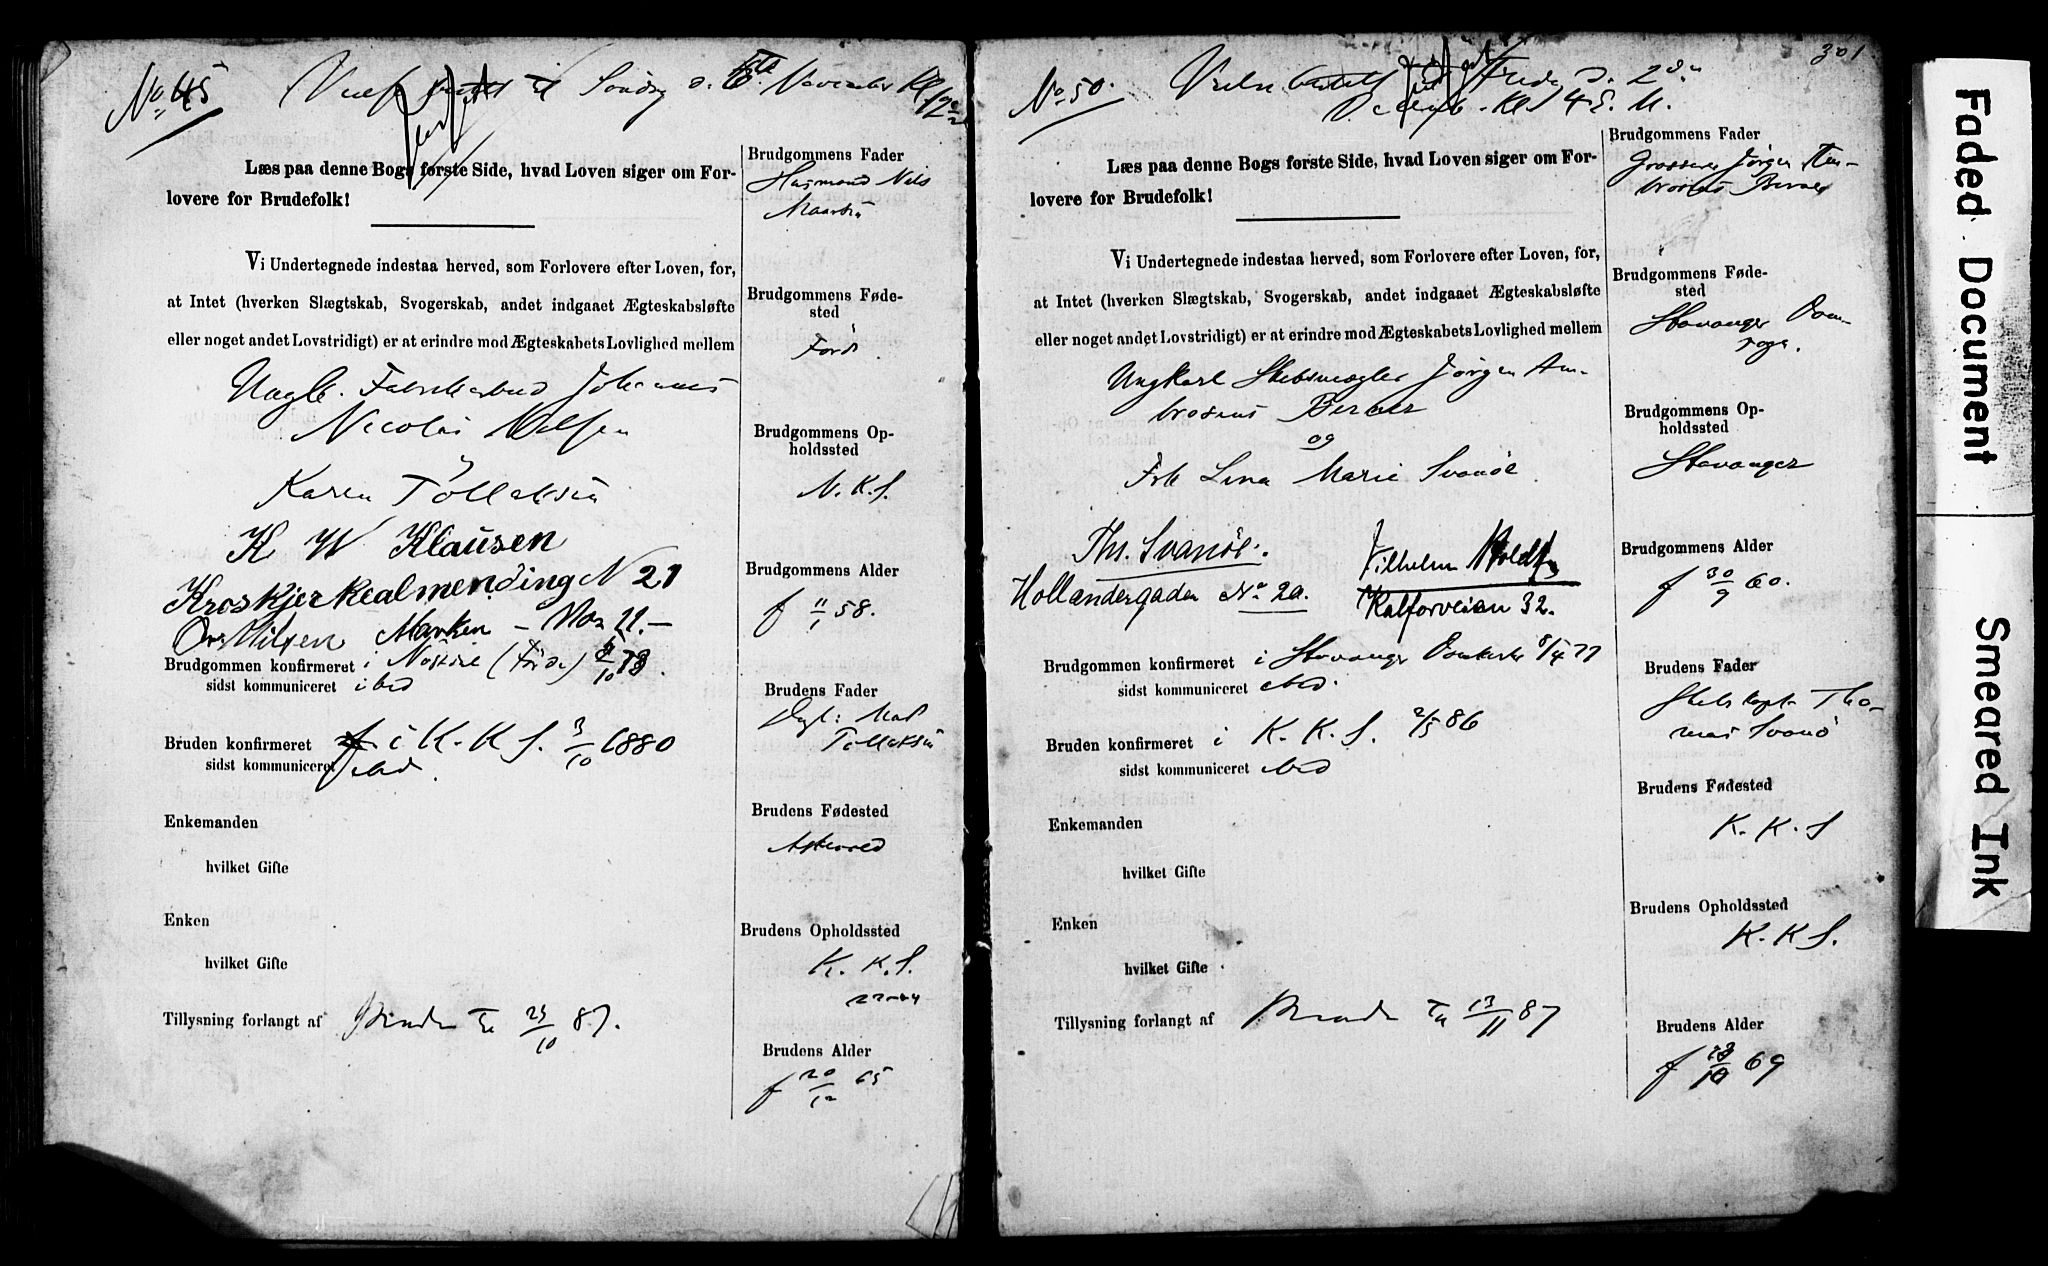 No 45
Søndag d. 6te November Kl
Læs paa denne Bogs første Side, hvad Loven siger om For-
lovere for Brudefolk!
Vi Undertegnede indestaa herved, som Forlovere efter Loven, for,
at Intet (hverken Slægtskab, Svogerskab, andet indgaaet Ægteskabsløfte
eller noget andet Lovstridigt) er at erindre mod Ægteskabets Lovlighed mellem
Johannes
Nicolai Nilsen
Karen Tollaksen
K W Klausen
Kroskjerkealmending N 21
Nilsen Marken - No 21.-
Brudgommen konfirmeret i (Førde)
sidst kommuniceret ibid
Bruden konfirmeret i K. K. S. 3/10 1880
sidst kommuniceret ibid.
Enkemanden
hvilket Gifte
Enken
hvilket Gifte
Tillysning forlangt af 87.
Brudgommens Fader
Husmand Nels
Brudgommens Føde-
sted
Førde.
Brudgommens Op-
holdssted
N. K. S.
Brudgommens Alder
f 11/1 58.
Brudens Fader
Tollaksen
Brudens Fødested
Askevold
Brudens Opholdssted
K. K. S.
Brudens Alder
f 20/12 65
301
No 50.
Fredag d. 2den
Decemb. Kl 4 E. M.
Læs paa denne Bogs første Side, hvad Loven siger om For-
lovere for Brudefolk!
Vi Undertegnede indestaa herved, som Forlovere efter Loven, for,
at Intet (hverken Slægtskab, Svogerskab, andet indgaaet Ægteskabsløfte
eller noget andet Lovstridigt) er at erindre mod Ægteskabets Lovlighed mellem
Ungkarl Skibsmægler Jørgen Am-
brosius Berner
og
Frk Lina Marie Svanøe
Ths. Svanöe.
Hollændergaden No 20.
Vilhelm
Kalforveien 32.
Brudgommen konfirmeret i Stavanger Domkirke 8/4 77
sidst kommuniceret ibid.
Bruden konfirmeret i K. K. S. 2/5 86
sidst kommuniceret ibid
Enkemanden
hvilket Gifte
Enken
hvilket Gifte
Tillysning forlangt af 13/11 87
Brudgommens Fader
Grosserer Jørgen Am-
brosius Berner
Brudgommens Føde-
sted
Stavanger Dom-
sogn.
Brudgommens Op-
holdssted
Stavanger
Brudgommens Alder
f 30/9 60.
Brudens Fader
Skibskapt. Tho-
mas Svanö
Brudens Fødested
K. K. S
Brudens Opholdssted
K. K S.
Brudens Alder
f 69
Faded Document
Smeared Ink